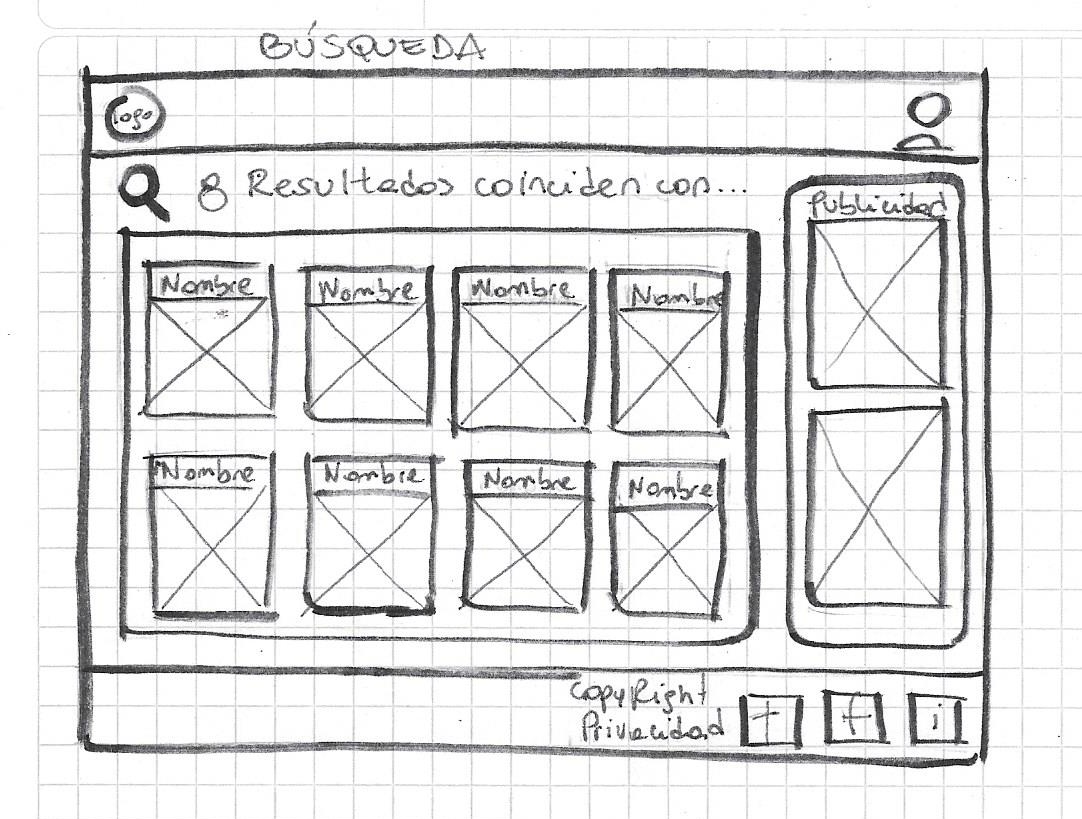 BÚSQUEDA
Logo
8 Resultados coinciden con...
Publicidad
Nombre Nombre Nombre Nombre
Nombre Nombre Nombre Nombre
CopyRight
Privacidad
t f i